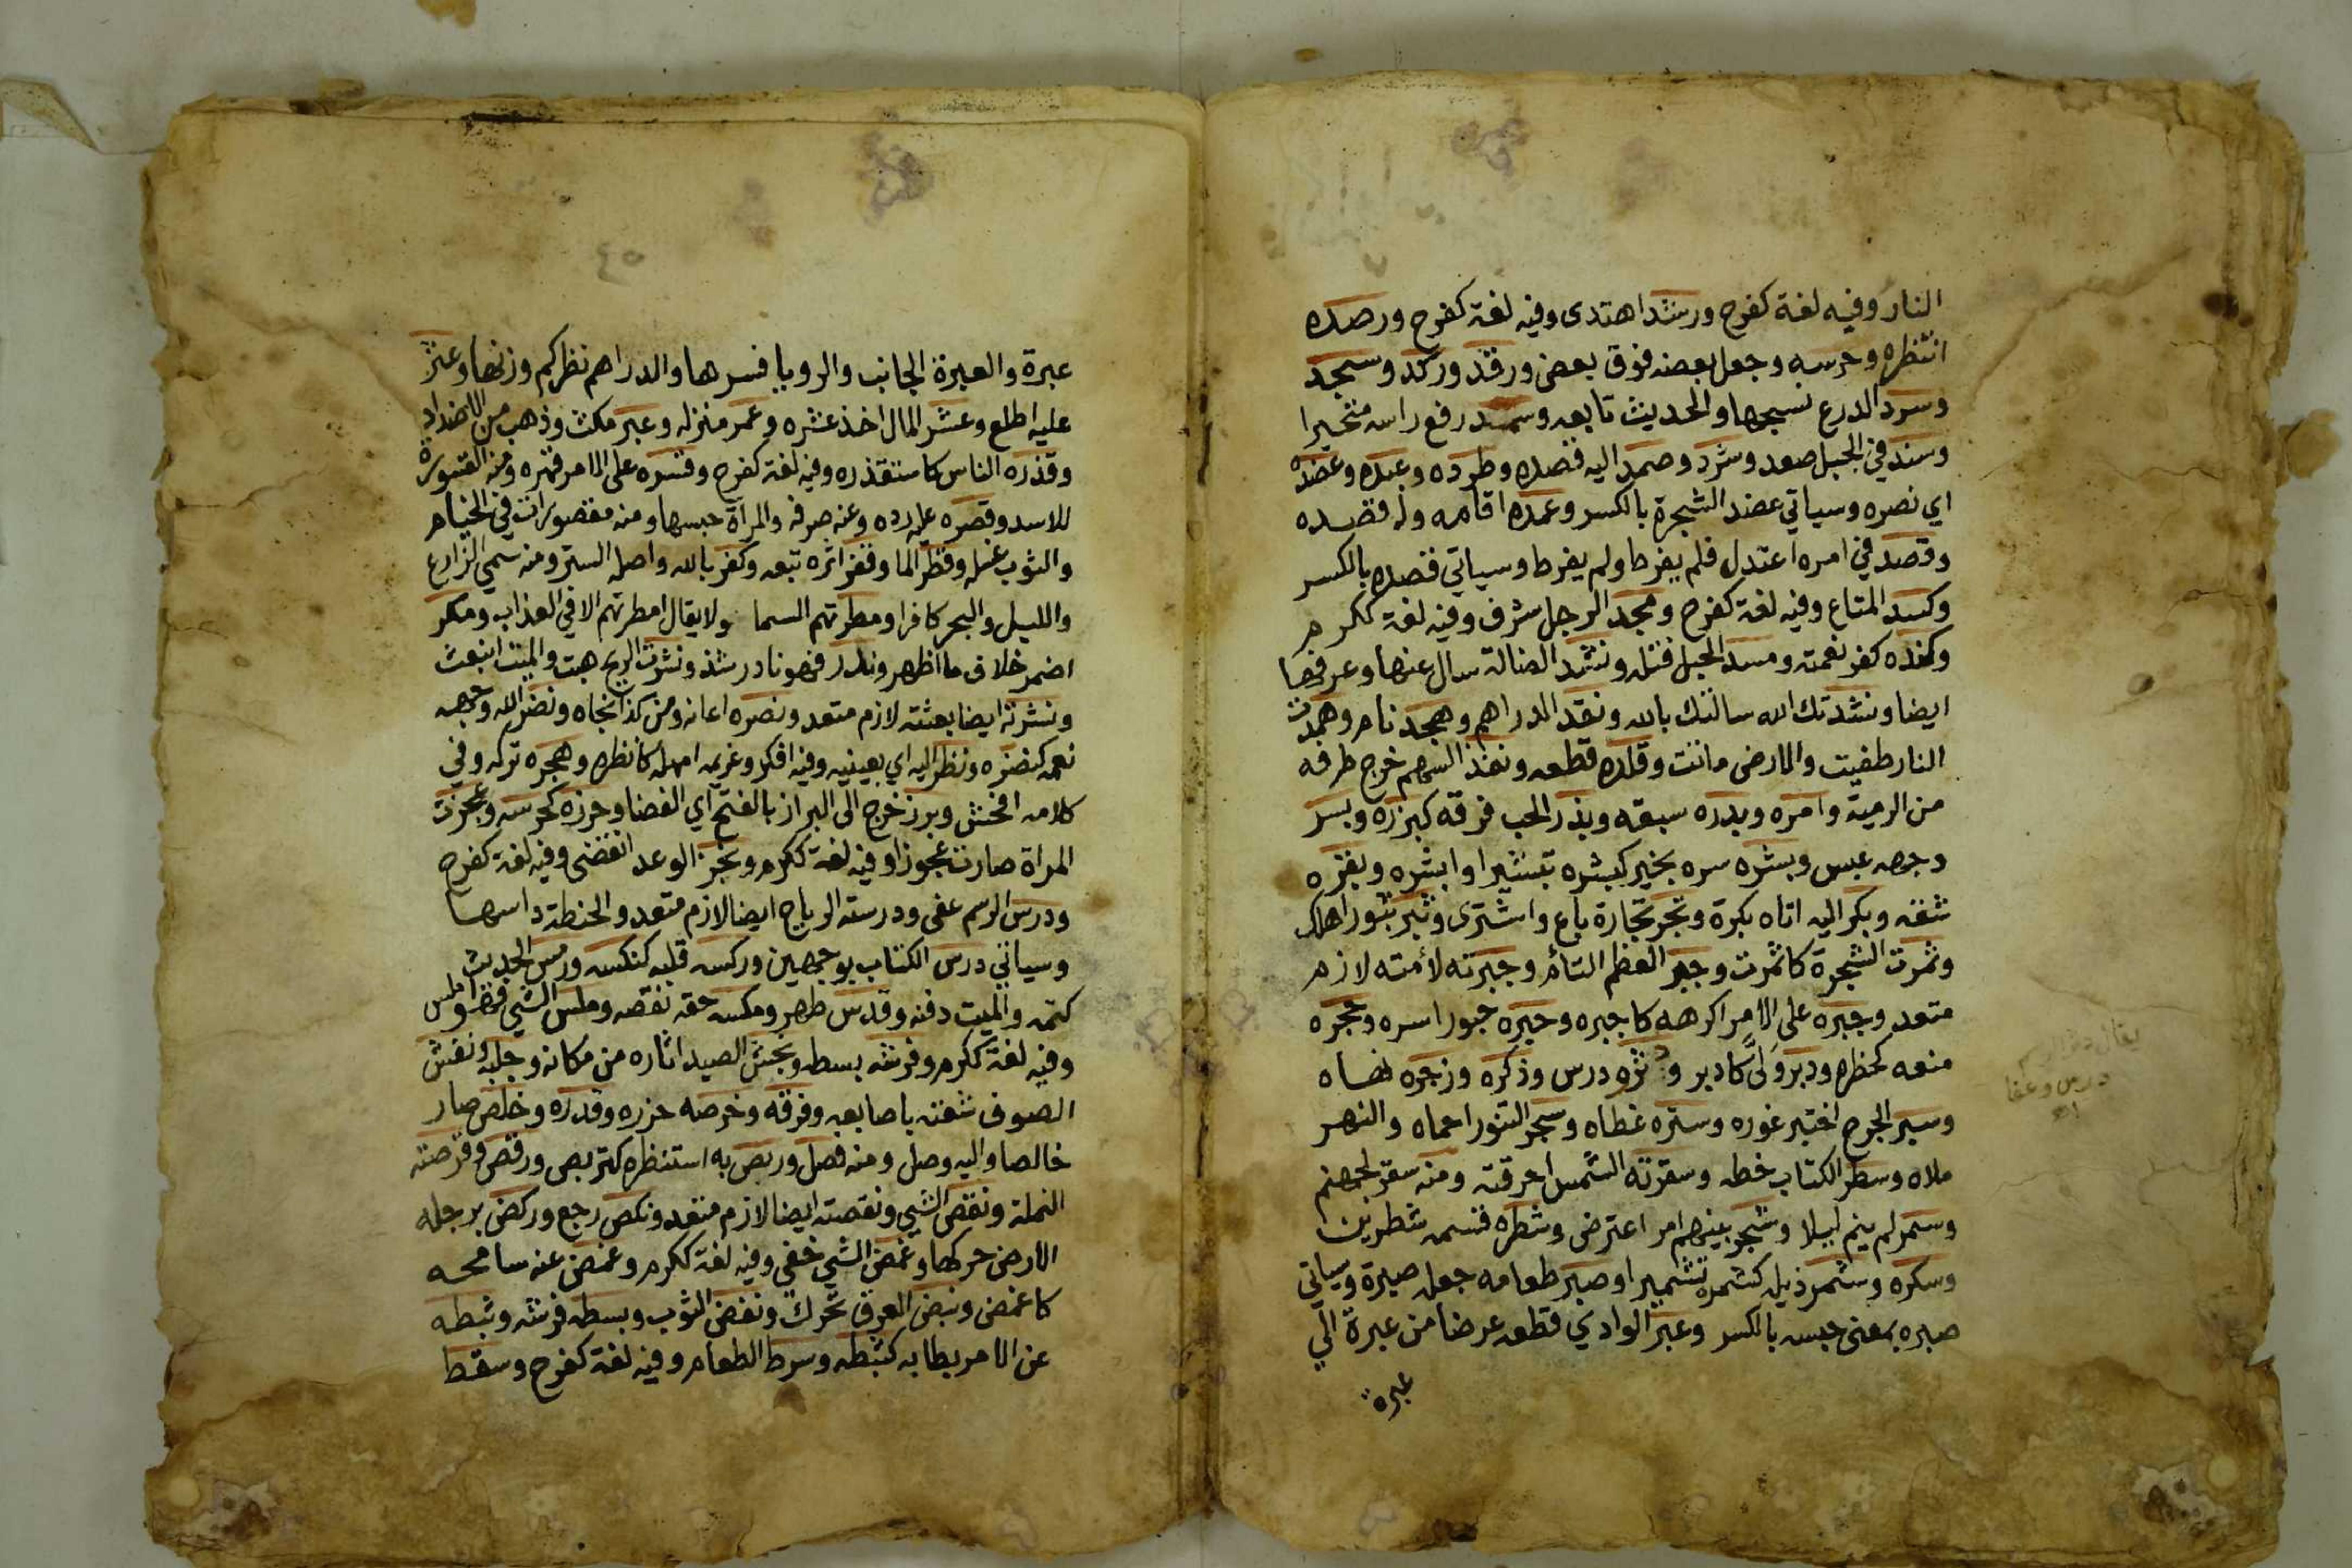 النار وفيه لغة كفرح ورشد اهتدى وفيه لغة كفرح ورصده
انتظره وحرسه وجعل بعضه فوق بعض ورقد وركد وسجد
وسرد الدرع نسجها والحديث تابعه وسمد رفع راسه متحيرا
وسند في الجبل صعد وشرد وصمد اليه قصده وطرده وعبده وعضده
اي نصره وسياتي عضد الشجرة بالكسر وعمده اقامه وله قصده
وقصد في امره اعتدل فلم يفرط ولم يفرط وسياتي قصده بالكسر
وكسد المتاع وفيه لغة ككرم ومجد الرجل شرف وفيه لغة ككرم
وكنده كفر نعمته ومسد الحبل فتله ونشد الضالة سال عنها وعرفها
ايضا ونشدتك الله سالتك بالله ونقد الدراهم وهجد نام وهمدت
النار طفيت والارض ماتت وقلده قطعه ونفذ السهم خرج طرفه
من الرمية وامره وبدره سبقه وبذر الحب فرقه كبزره وبسر
وجهه عبس وبشره سره بخير كبشره تبشيرا وابشره وبقره
شقه وبكر اليه اتاه بكرة وتجر تجارة باع واشترى وثبر ثبورا هلك
وثمرت الشجرة كاثمرت وجبر العظم التام وجبرته لأمته لازم
متعد وجبره على الامر اكرهه كاجبره وحبره حبورا سره وحجره
منعه كحظره ودبر ولى كادبر و دثر درس وذكره وزجره نهاه
وسبر الجرح اختبر غوره وستره غطاه وسجر التنور احماه والنهر
ملاه وسطر الكتاب خطه وسقرته الشمس احرقته ومنه سقر لجهنم
وسمر لم ينم ليلا وشجر بينهم امر اعترض وشطره قسمه شطرين
وسكره وشمر ذيله كشمره تشميرا وصبر طعامه جعله صبرة وسياتي
صبره بمعنى حبسه بالكسر وعبر الوادي قطعه عرضا من عبرة الي
عبره
يقال
درس وعفا
اه
٤٥
عبرة والعبرة الجانب والرويا فسرها والدراهم نظر كم وزنها وعثر
عليه اطلع وعشر المال اخذ عشره وعمر منزله وغبر مكث وذهب من الاضداد
وقذره الناس كاستقذره وفيه لغة كفرح وقسره على الامر قهره ومنه القسورة
للاسد وقصره عليه رده وعنه صرفه والمراة حبسها ومنه مقصورات في الخيام
والثوب غسله وقطر الما وقفر اثره تبعه وكفر بالله واصله الستر ومنه سمي الزارع
والليل والبحر كافرا ومطرتهم السما ولا يقال امطرتهم الا في العذاب ومكر
اضمر خلاف ما اظهر وندر فهو نادر شذ ونشرت الريح هبت والميت انبعث
ونشرته ايضا بعثته لازم متعد ونصره اعانه ومن كذا نجاه ونضر الله وجهه
نعمه كنضره ونظر اليه اي بعينيه وفيه افكر وغريمه امهله كانظره وهجره تركه وفي
كلامه افحش وبرز خرج الى البراز بالفتح اي الفضا وحرزه كحرسه وعجزت
المراة صارت عجوزا وفيه لغة ككرم ونجز الوعد انقضى وفيه لغة كفرح
ودرس الرسم عفى ودرسته الرياح ايضا لازم متعد والحنطة داسها
وسياتي درس الكتاب بوجهين وركسه قلبه كنكسه ورمس الحديث
كتمه والميت دفنه وقدس طهر ومكسه حقه نقصه وملس الشي فهو املس
وفيه لغة ككرم وفرشه بسطه ونجش الصيد اثاره من مكانه وجلبه ونفش
الصوف شعثه باصابعه وفرقه وخرصه حزره وقدره وخلص صار
خالصا واليه وصل ومنه فصل وربص به استنظره كتربص ورقص وقرصته
النملة ونقص الشي ونقصته ايضا لازم متعد ونكص رجع وركض برجله
الارض حركها وغمض الشي خفي وفيه لغة ككرم وغمض عنه سامحه
كاغمض ونبض العرق تحرك ونفض الثوب وبسطه فرشه وثبطه
عن الامر بطا به كثبطه وسرط الطعام وفيه لغة كفرح وسقط